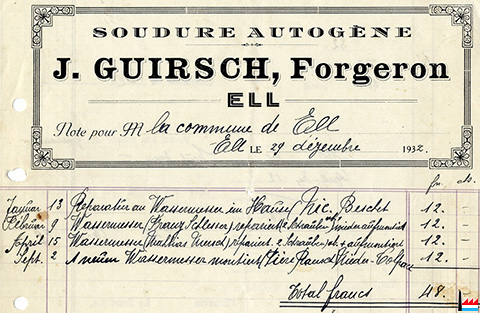 SOUDURE AUTOGÈNE
J. GUIRSCH, Forgeron
ELL
Note pour M la commune de Ell
Ell LE 29 dézembre 1932
fr. cts.
Januar 13 Reparatur am Wassermesser im Hause Nic. Bescht 12. -
Februar 9 Wassermesser repariert 2 Schrauben wiederaufmontiert 12. -
April 15 Wassermesser (Mathias repariert 2 Schrauben u. aufmontiert 12. -
Sept. 2 1 neuen Wassermesser montiert Nieder-Colpach 12. -
Total francs 48. -